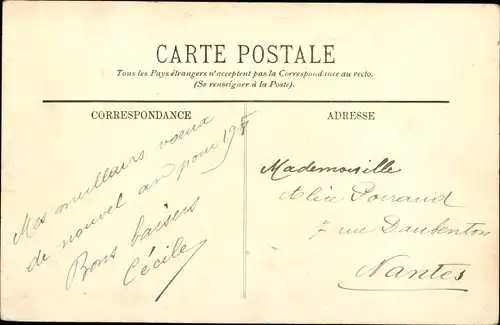 CARTE POSTALE
Tous les Pays étrangers n'acceptent pas la Correspondance au recto.
(Se renseigner à la Poste).
CORRESPONDANCE
Mes meilleurs voeux
de nouvel an pour
Bons baisers
Cécile
ADRESSE
Mademoiselle
7 rue Daubenton
Nantes